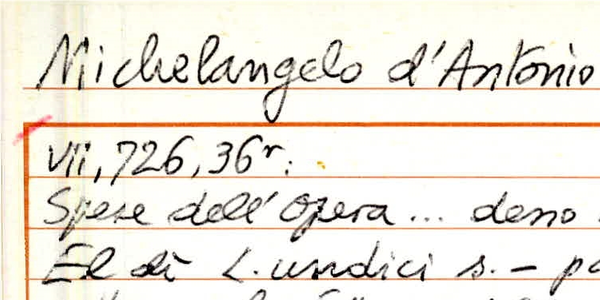 Michelangelo d'Antonio
VII, 726, 36r:
Spese dell'Opera ... deno
El dì L. undici s. -